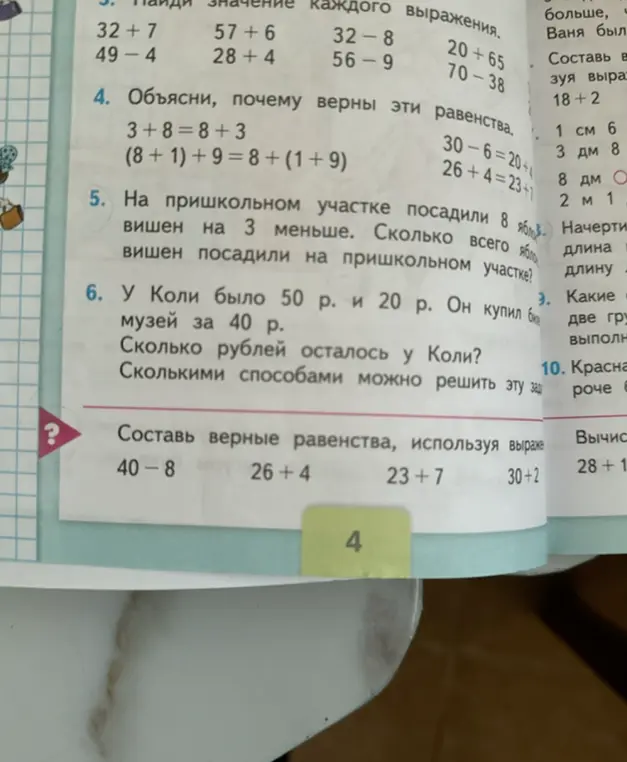 3. Найди значение каждого выражения.
32 + 7 57 + 6 32 − 8 20 + 65
49 − 4 28 + 4 56 − 9 70 − 38
4. Объясни, почему верны эти равенства.
3 + 8 = 8 + 3 30 − 6 = 20 +
(8 + 1) + 9 = 8 + (1 + 9) 26 + 4 = 23 +
5. На пришкольном участке посадили 8
вишен на 3 меньше. Сколько всего
вишен посадили на пришкольном участке?
6. У Коли было 50 р. и 20 р. Он купил
музей за 40 р.
Сколько рублей осталось у Коли?
Сколькими способами можно решить эту
?
Составь верные равенства, используя выраже
40 − 8 26 + 4 23 + 7 30 + 2
4
больше,
Ваня был
Составь
зуя выра
18 + 2
1 см 6
3 дм 8
8 дм
2 м 1
Начерти
длина
длину
9. Какие
две гру
выполн
10. Красна
роче
Вычис
28 + 1